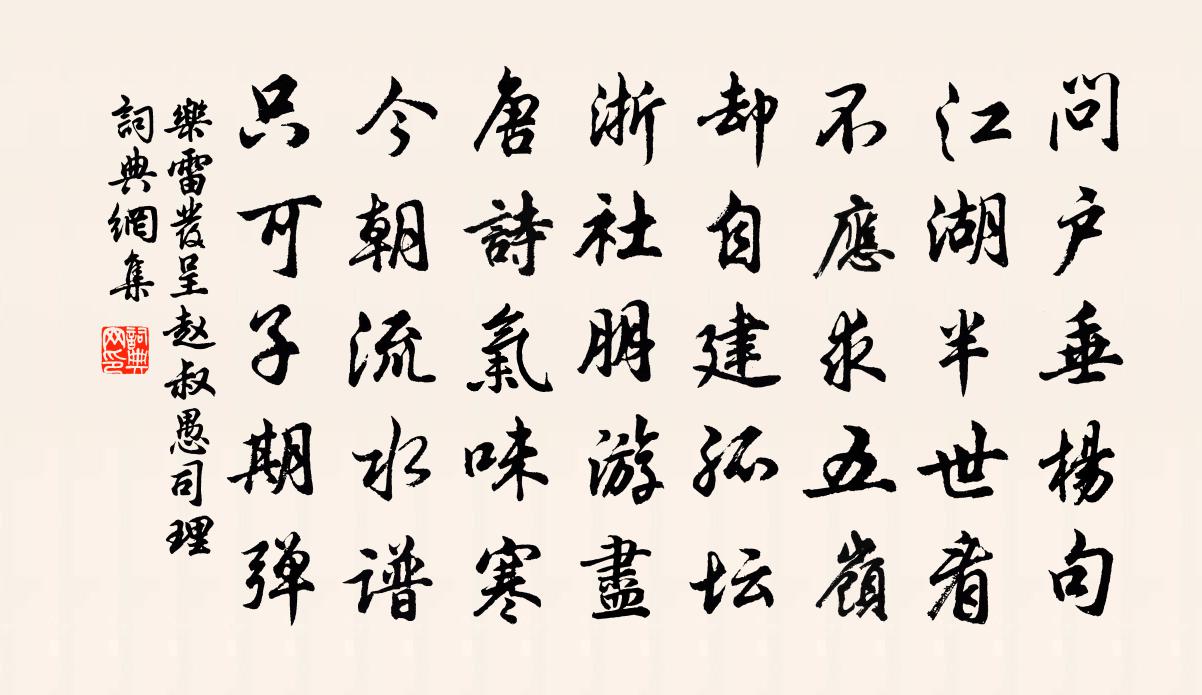 問户垂楊句
江湖半世看
不應求五嶺
却自建孤坛
浙社朋游盡
唐詩氣味寒
今朝流水谱
只可子期弹
樂雷发呈赵叔愚司理
詞典網集
詞典網印